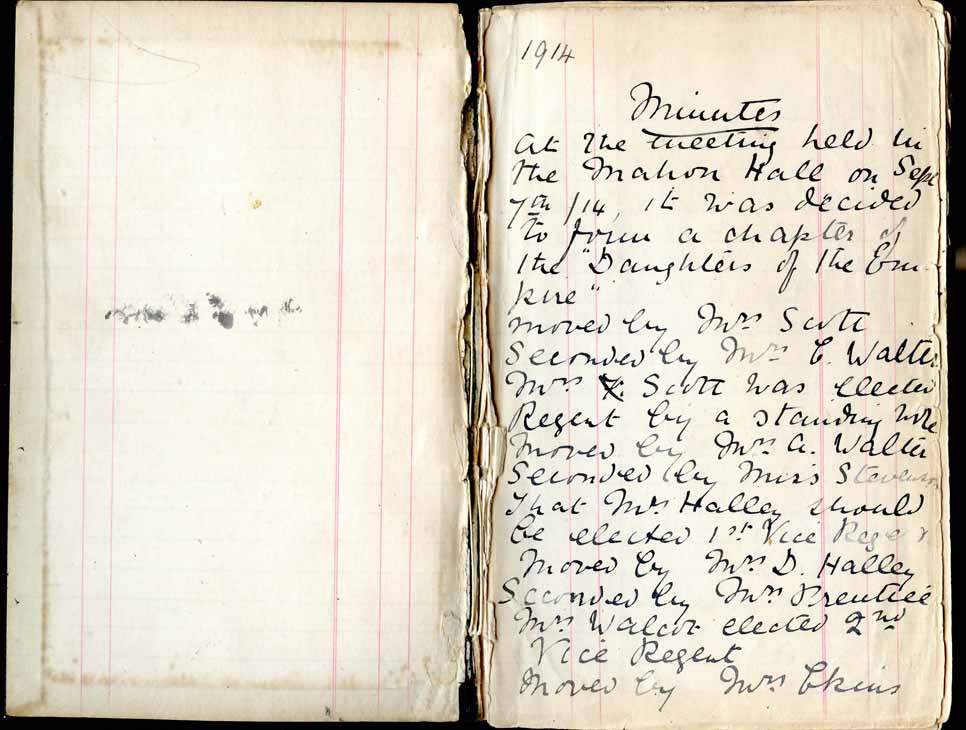 1914
Minutes
At the meeting held in
the Mahon Hall on Sept
7th /14, it was decided
to form a chapter of
the "Daughters of the Em-
pire"
moved by Mrs Scott
Seconded by Mrs C. Walter
Mrs Scott was elected
Regent by a standing vote
Moved by Mrs A. Walter
Seconded by Miss Stevenson
that Mrs Halley should
be elected 1st Vice Regent
Moved by Mrs D. Halley
Seconded by Mrs Prentice
Mrs Walcot elected 2nd
Vice Regent
Moved by Mrs Ekins